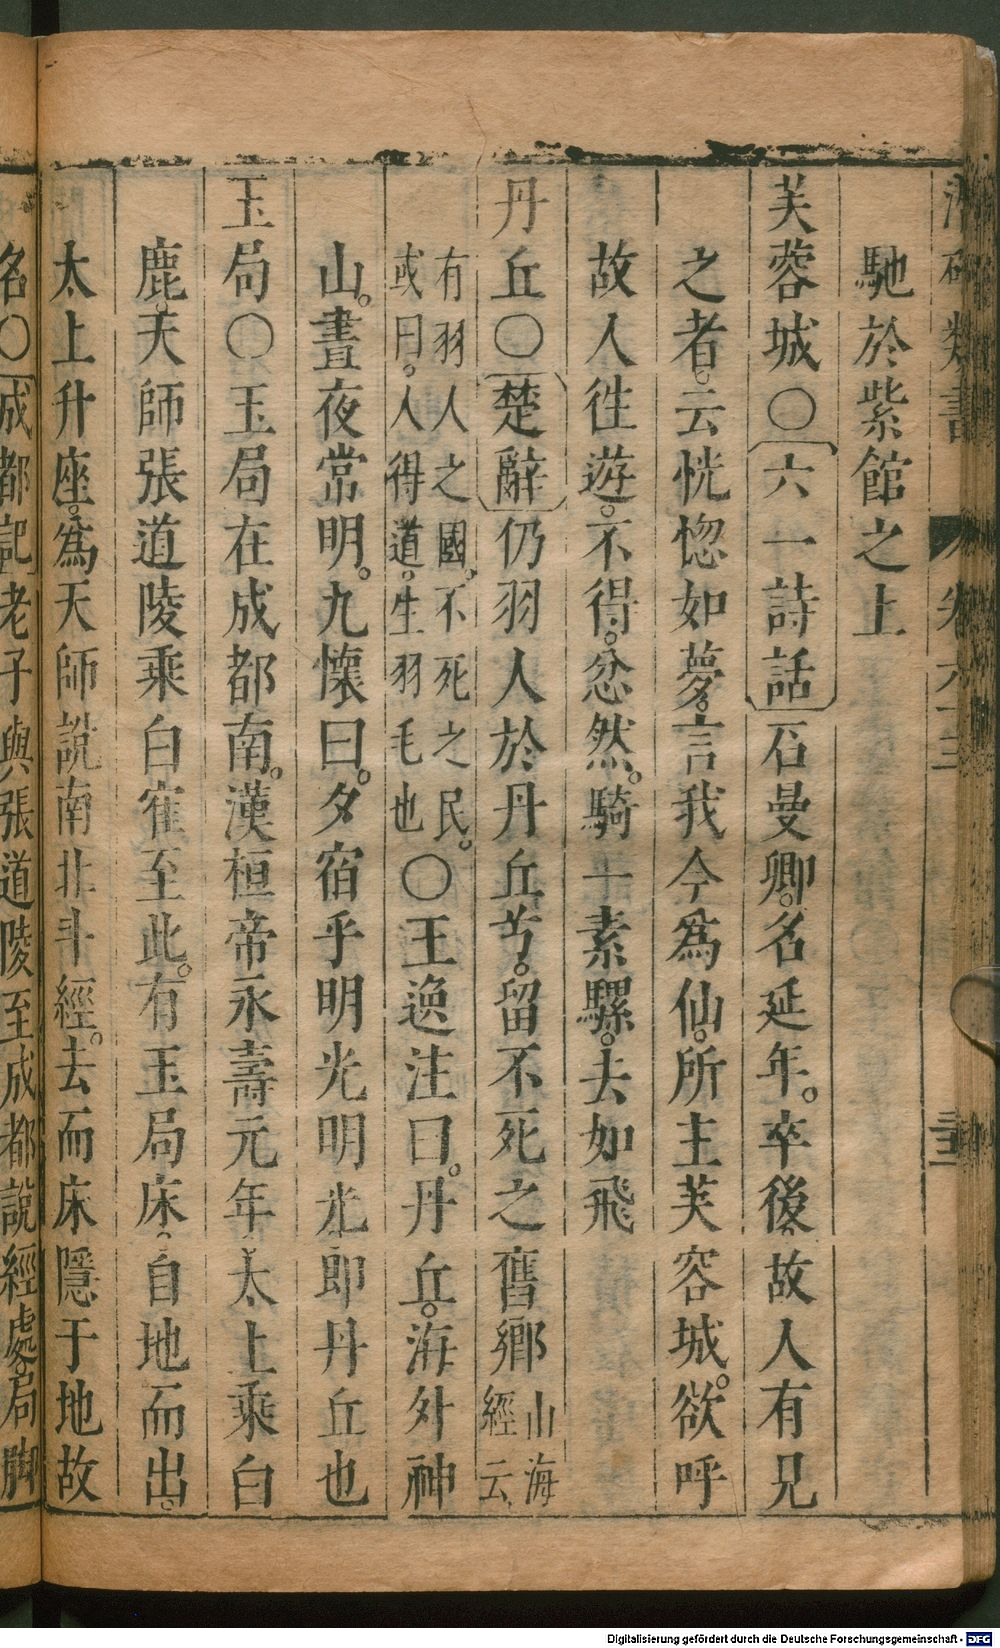 卷六十三
馳於紫館之上
芙蓉城〇六一詩話石曼卿。名延年。卒後。故人有見
之者。云恍惚如夢。言我今為仙。所主芙容城。欲呼
故人徃遊。不得。忿然。騎一素騾。去如飛
丹丘〇楚辭仍羽人於丹丘兮。留不死之舊鄉山海經云
有羽人之國。不死之民。
或曰。人得道。生羽毛也〇王逸注曰。丹丘。海外神
山。晝夜常明。九懷曰。夕宿乎明光明光即丹丘也
玉局〇玉局在成都南。漢桓帝永壽元年太上乘白
鹿。天師張道陵乘白隺至此。有玉局床。自地而出。
太上升座。為天師說南北斗經。去而床隱于地故
名〇成都記老子與張道陵至成都說經處。局脚
Digitalisierung gefördert durch die Deutsche Forschungsgemeinschaft - DFG